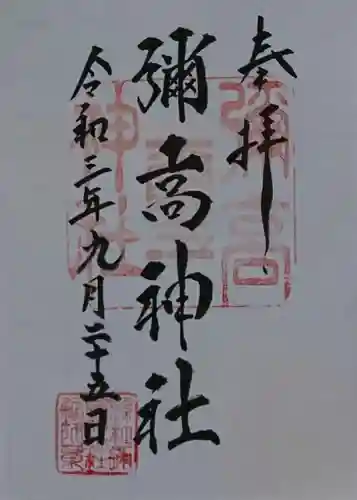 奉拝
彌高神社
令和三年九月二十五日
彌高神社